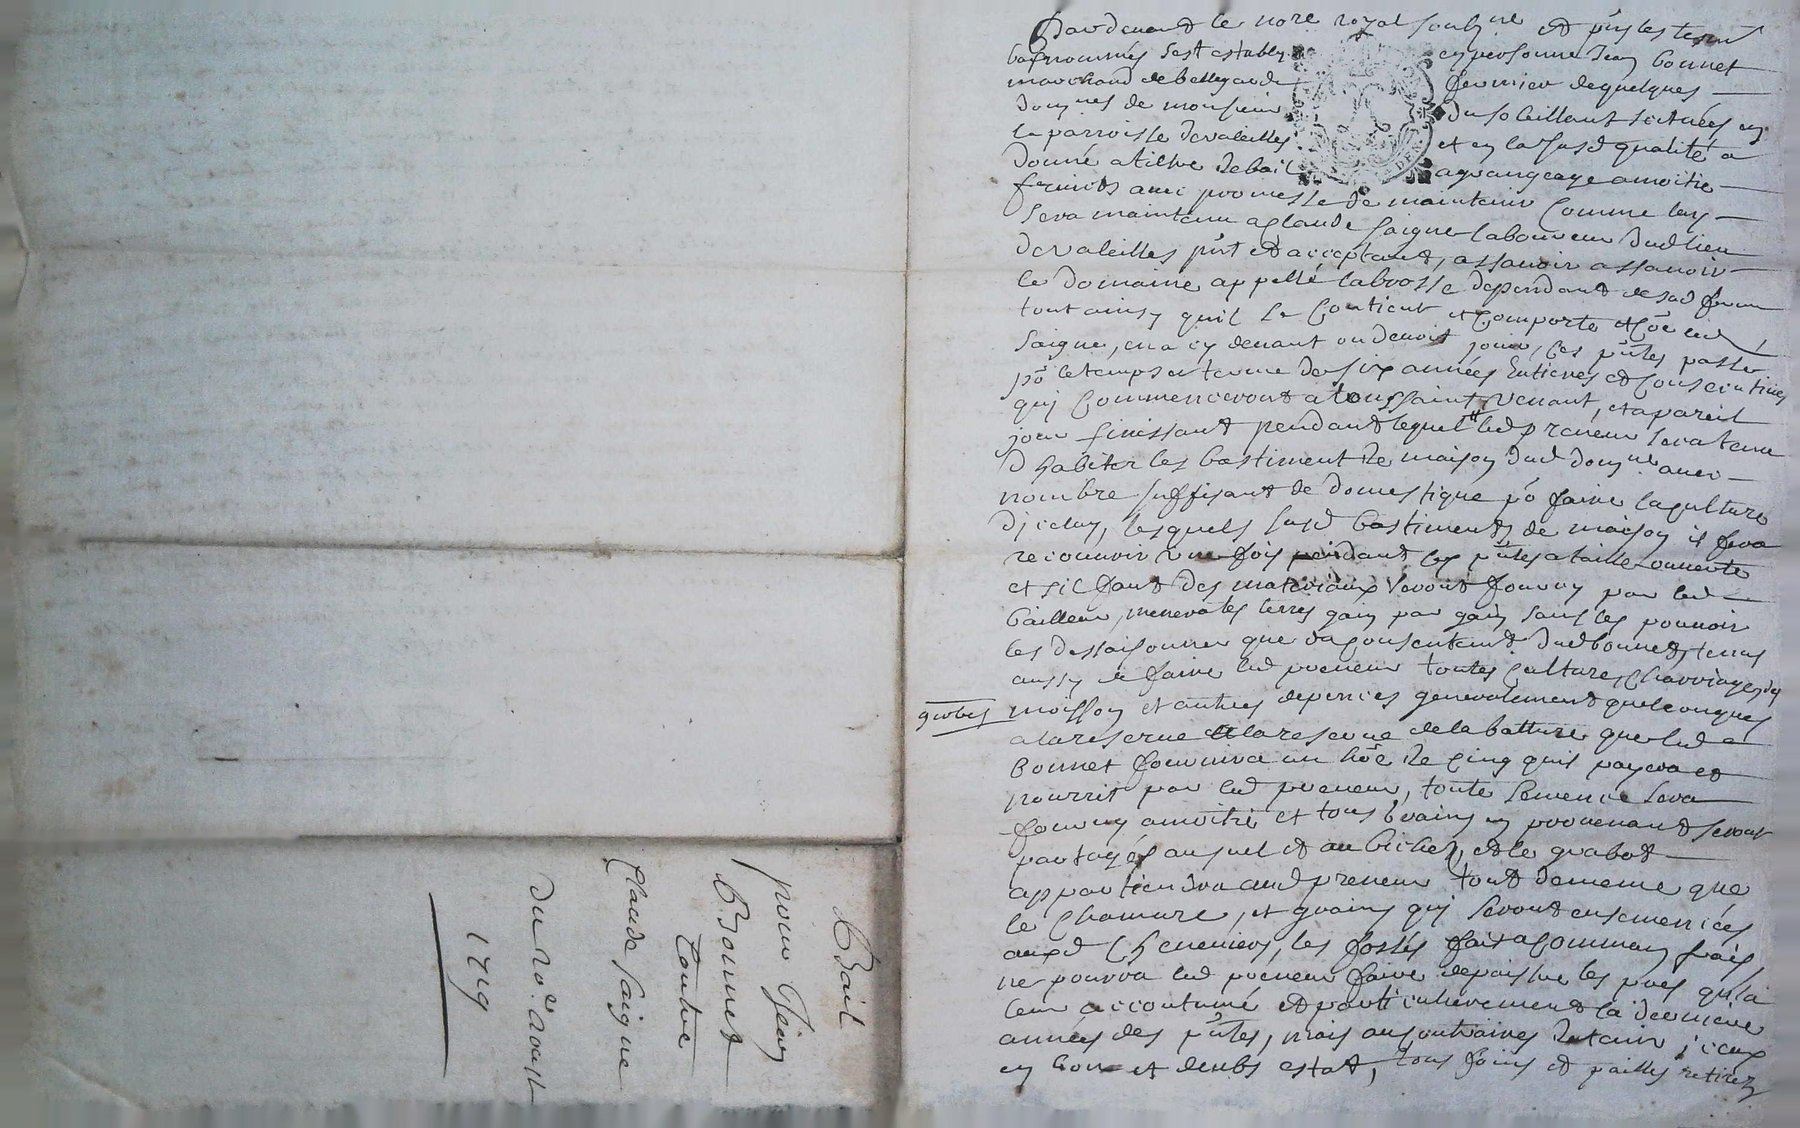 Bail
pour Jean
Bonnet
Contre
Claude Saigne
Du 20e aoust
1719
Pardevant le nore royal soubz.ne et pñs les tesm.
bas nommés s'est estably en personne Jean bonnet
marchand de bellegarde fermier de quelques
domnes de monsieur Dusoleillant scitués en
la parroisse de valeilles et en lasusd qualité a
donné a tiltre de bail agrangeage amoitié
fruicts avec promesse de maintenir comme luy
sera maintenu a Claude saigne laboureur dud lieu
de valeilles pñt et acceptant, assavoir assavoir
le domaine appellé labrosse dependant de sad ferme
tout ainsy quil se Contient et Comporte et Cõe led
saigne, en a cy devant ou devoit jouir, ses pñtes passé
põ le temps et terme de six années Entieres et consecutives
quy Commenceront a toussaint Venant, et a pareil
jour finissant pendant lequel t led preneur sera tenu
d habiter les bastiment de maison dud domne avec
nombre suffisant de domestique põ faire la culture
d'jceluy, lesquels susd bastiments de maison il fera
recouvrir une fois pendant les pñtes a taille ouverte
et sil faut des materiaux seront fourny par led
bailleur, menera les terres gain par gain sans les pouvoir
les dessaisonner que du consentemt dud bonnet, tenus
aussy de faire led preneur toutes Cultures Charriages des
gerbes moisson et autres depences generalement quelconques
a la reserve a la reserve de la batture que led
Bonnet fournira un hõe de Cinq quil payera et
nourrit par led preneur, toute semence sera
fourny amoitié et tous Grains en provenant seront
partagés au suel et au bichet, et le grabot
appartiendra aud preneur tout de meme que
le Chanvre, et grains quy seront ensemencés
aux d Cheneviers, les fossés fait a Commun frais,
ne pourra led preneur faire depaistre les prés qu'a
leur accoutumé et particulierement la derniere
années des pñtes, mais au contraires Detenir jceux
en bon et deubs estat, tous foins et pailles retirez